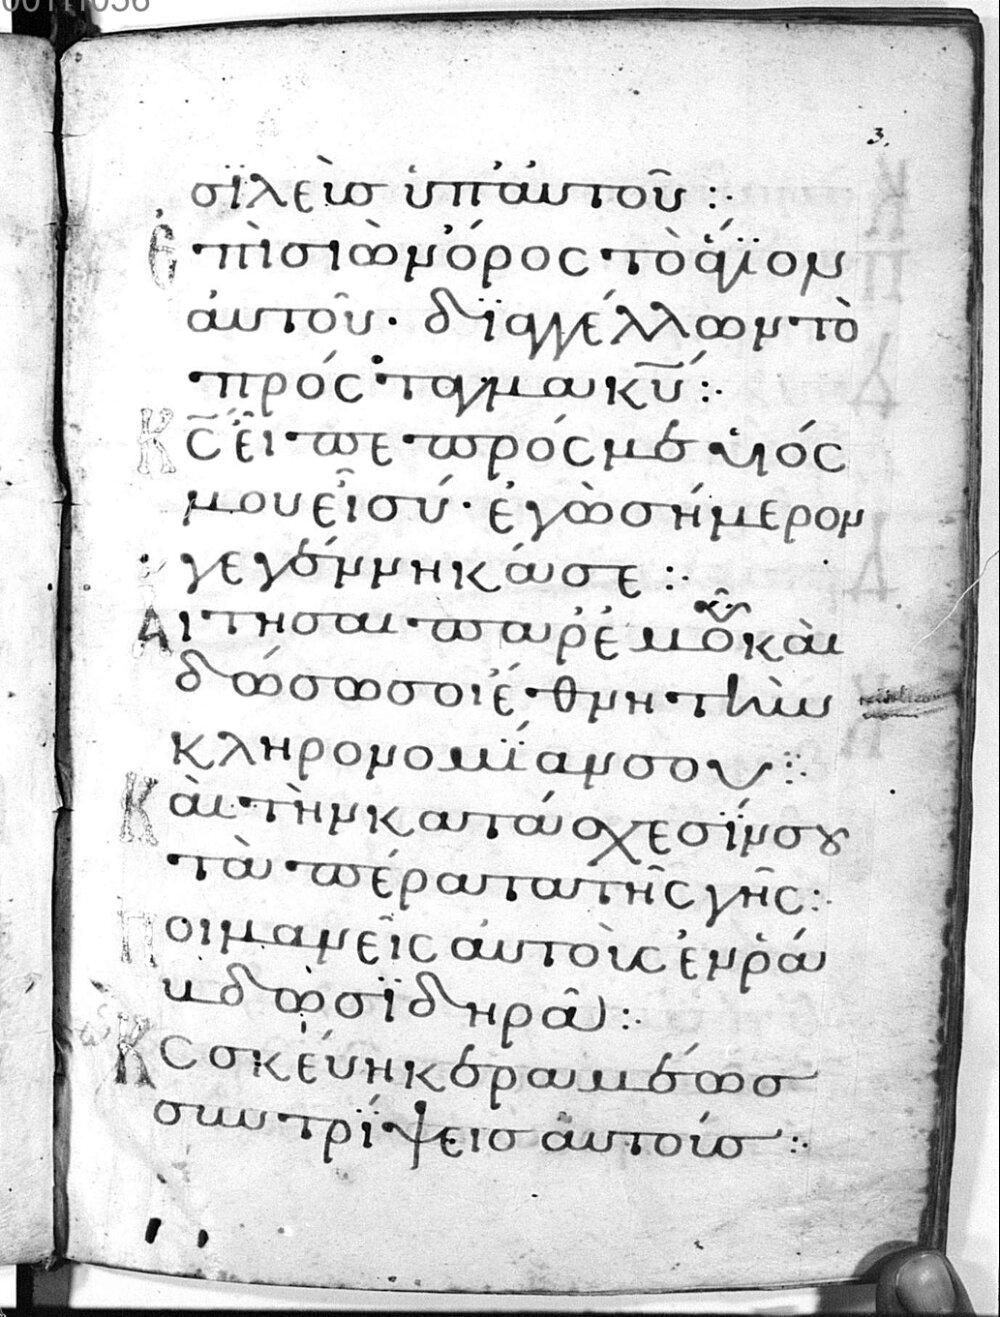 00111056
3.
σϊλεὺσ ὑπ' ἀυτοῦ :·
Ἐπὶ σιὼν ὄρος τὸ ἅγϊον
ἀυτοῦ· δϊαγγέλλων τὸ
πρόσταγμα κ̅υ̅ :·
Κ̅ς̅ εἶπε πρός με ὑιός
μου εἶ σύ· ἐγὼ σήμερον
γεγέννηκά σε :·
Αἴτησαι παρ' ἐμοῦ καὶ
δώσω σοι ἔθνη τὴν
κληρονομΐαν σου :·
Καὶ τὴν κατάσχεσΐν σου
τὰ πέρατα τῆς γῆς :·
Ποιμανεῖς ἀυτοὺς ἐν ῥά
βδῳ σϊδηρᾶ :·
Ὡς σκέυη κεραμέωσ
συντρΐψεισ ἀυτούσ :·